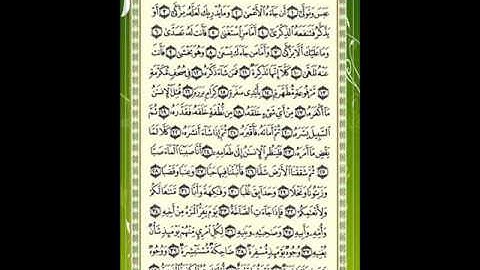 عَبَسَ وَتَوَلَّىٰ ١ أَن جَاءَهُ الْأَعْمَىٰ ٢ وَمَا يُدْرِيكَ لَعَلَّهُ يَزَّكَّىٰ ٣ أَوْ
يَذَّكَّرُ فَتَنفَعَهُ الذِّكْرَىٰ ٤ أَمَّا مَنِ اسْتَغْنَىٰ ٥ فَأَنتَ لَهُ تَصَدَّىٰ ٦
وَمَا عَلَيْكَ أَلَّا يَزَّكَّىٰ ٧ وَأَمَّا مَن جَاءَكَ يَسْعَىٰ ٨ وَهُوَ يَخْشَىٰ ٩ فَأَنتَ
عَنْهُ تَلَهَّىٰ ١٠ كَلَّا إِنَّهَا تَذْكِرَةٌ ١١ فَمَن شَاءَ ذَكَرَهُ ١٢ فِي صُحُفٍ مُّكَرَّمَةٍ
١٣ مَّرْفُوعَةٍ مُّطَهَّرَةٍ ١٤ بِأَيْدِي سَفَرَةٍ ١٥ كِرَامٍ بَرَرَةٍ ١٦ قُتِلَ الْإِنسَٰنُ
مَا أَكْفَرَهُ ١٧ مِنْ أَيِّ شَيْءٍ خَلَقَهُ ١٨ مِن نُّطْفَةٍ خَلَقَهُ فَقَدَّرَهُ ١٩ ثُمَّ
السَّبِيلَ يَسَّرَهُ ٢٠ ثُمَّ أَمَاتَهُ فَأَقْبَرَهُ ٢١ ثُمَّ إِذَا شَاءَ أَنشَرَهُ ٢٢ كَلَّا لَمَّا
يَقْضِ مَا أَمَرَهُ ٢٣ فَلْيَنظُرِ الْإِنسَٰنُ إِلَىٰ طَعَامِهِ ٢٤ أَنَّا صَبَبْنَا الْمَاءَ صَبًّا
٢٥ ثُمَّ شَقَقْنَا الْأَرْضَ شَقًّا ٢٦ فَأَنبَتْنَا فِيهَا حَبًّا ٢٧ وَعِنَبًا وَقَضْبًا ٢٨
وَزَيْتُونًا وَنَخْلًا ٢٩ وَحَدَائِقَ غُلْبًا ٣٠ وَفَٰكِهَةً وَأَبًّا ٣١ مَّتَٰعًا لَّكُمْ
وَلِأَنْعَٰمِكُمْ ٣٢ فَإِذَا جَاءَتِ الصَّاخَّةُ ٣٣ يَوْمَ يَفِرُّ الْمَرْءُ مِنْ أَخِيهِ ٣٤
وَأُمِّهِ وَأَبِيهِ ٣٥ وَصَٰحِبَتِهِ وَبَنِيهِ ٣٦ لِكُلِّ امْرِئٍ مِّنْهُمْ يَوْمَئِذٍ شَأْنٌ
يُغْنِيهِ ٣٧ وُجُوهٌ يَوْمَئِذٍ مُّسْفِرَةٌ ٣٨ ضَاحِكَةٌ مُّسْتَبْشِرَةٌ ٣٩ وَوُجُوهٌ